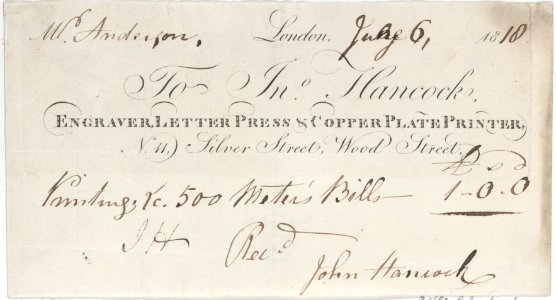 Mr. Anderson, London, July 6, 1818
To Jno. Hancock,
ENGRAVER, LETTER PRESS & COPPER PLATE PRINTER,
No. 11, Silver Street, Wood Street.
£ s d
Printing &c. 500 Meter's Bills 1-0.0
JH Recd
John Hancock